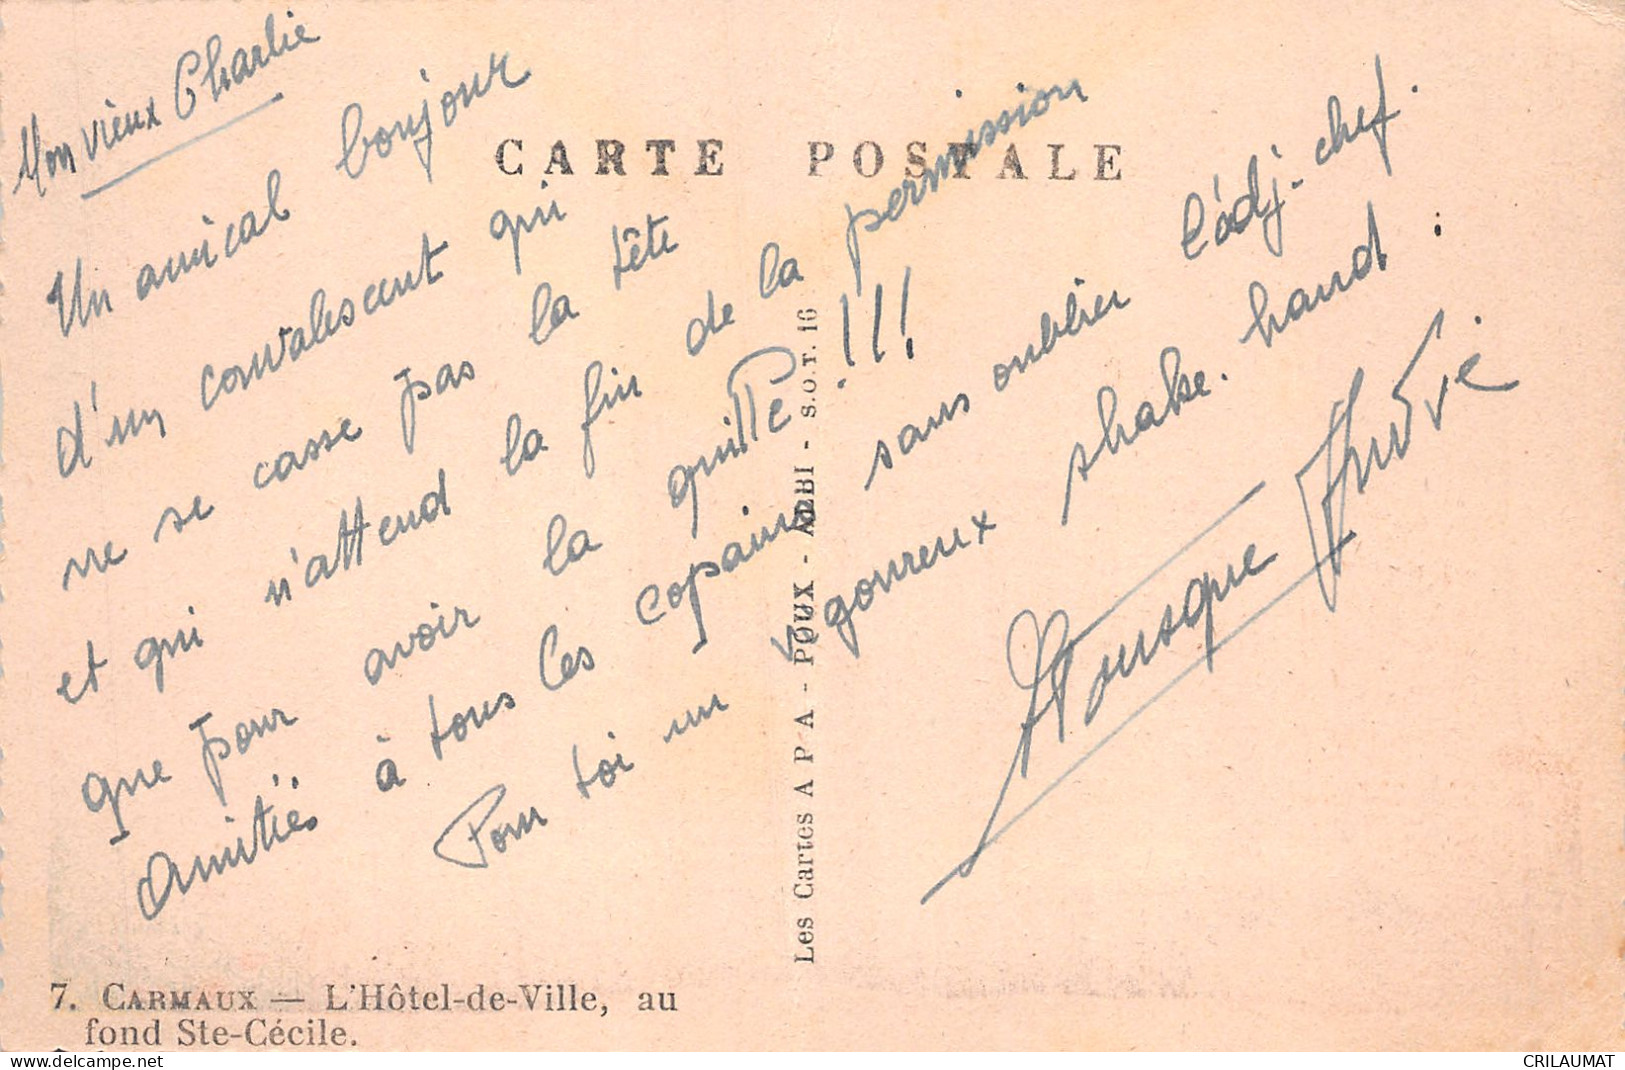 Mon vieux Charlie
CARTE POSTALE
Un amical bonjour
d'un convalescent qui
ne se casse pas la tête
et qui n'attend la fin de la permission
que pour avoir la quille !!!
Amitiés à tous les copains sans oublier l'adj-chef.
Pour toi un vigoureux shake-hand :
André
Les Cartes A P A - POUX - ALBI - S.O.T. 16
7. CARMAUX — L'Hôtel-de-Ville, au
fond Ste-Cécile.
www.delcampe.net
CRILAUMAT